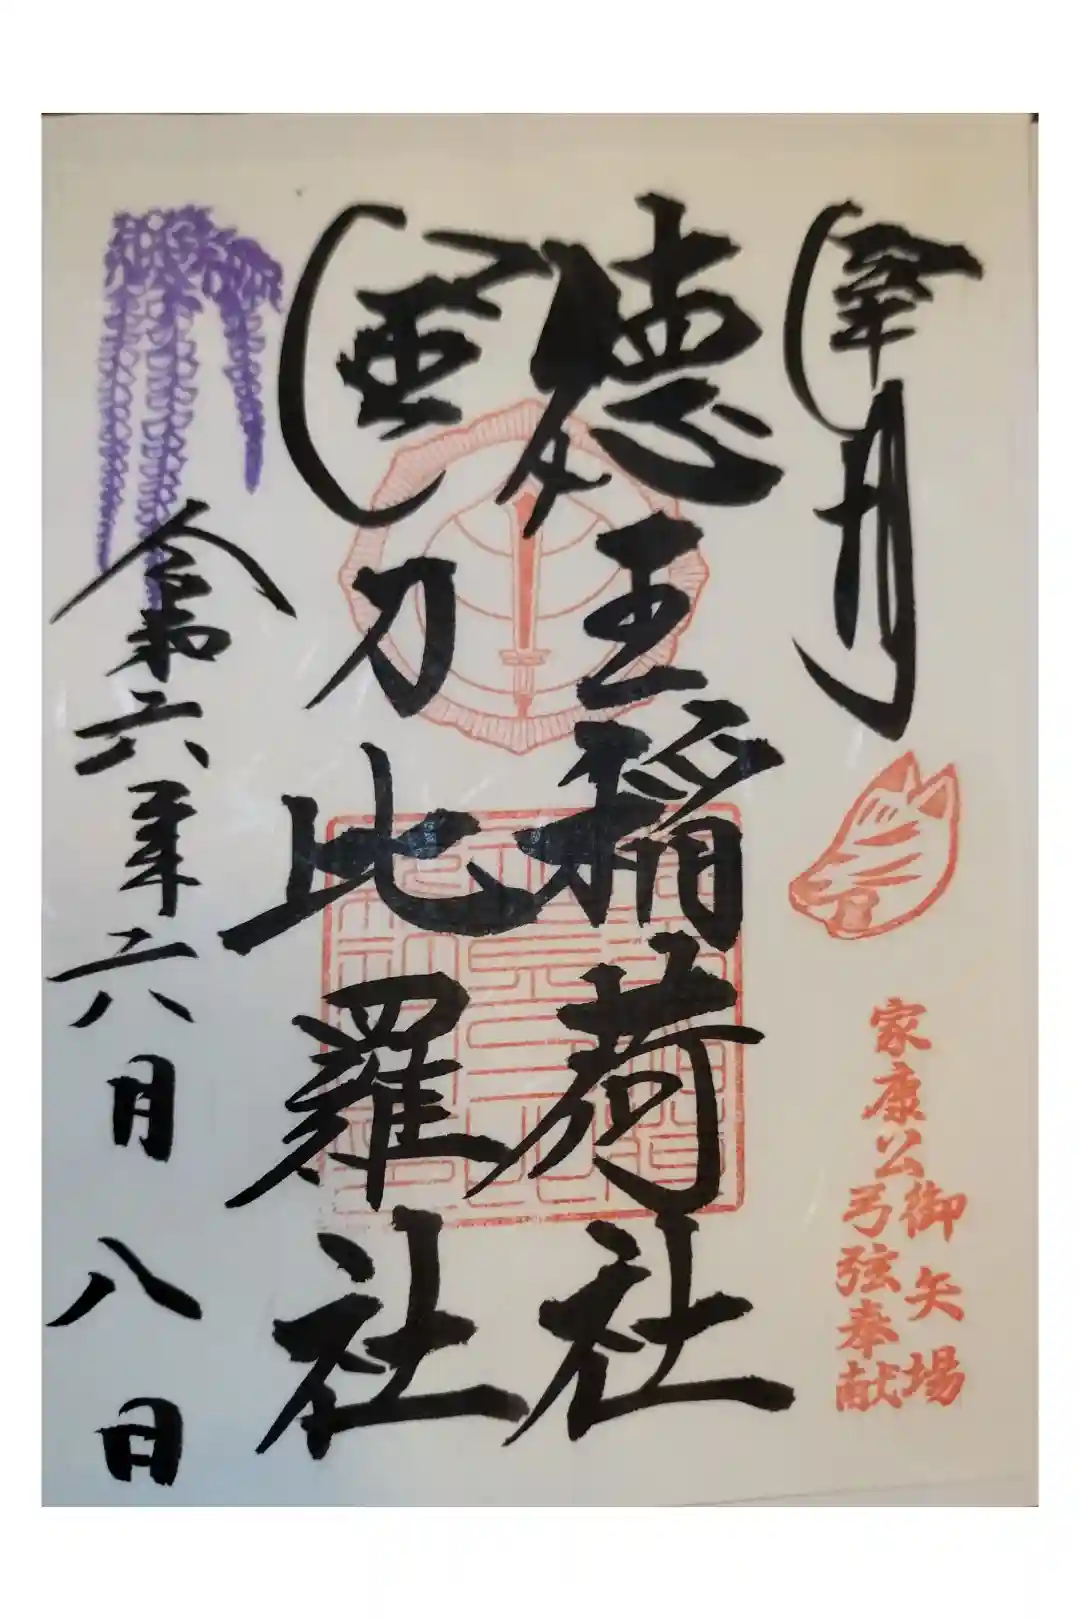 徳王稲荷社
金刀比羅社
家康公
御矢場
弓弦奉献
令和六年六月八日